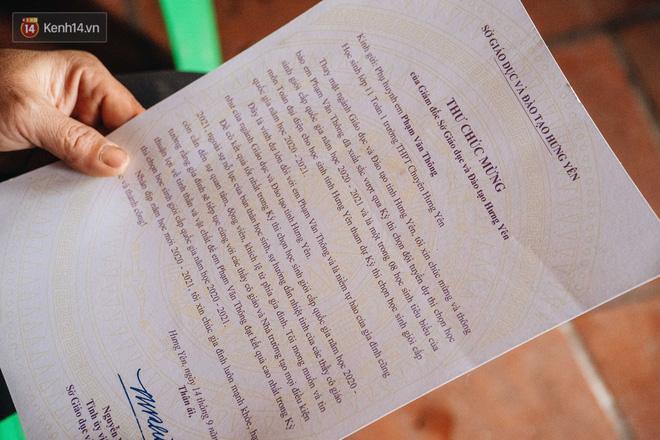 14 Kenh14.vn
SỞ GIÁO DỤC VÀ ĐÀO TẠO HƯNG YÊN
THƯ CHÚC MỪNG
của Giám đốc Sở Giáo dục và Đào tạo Hưng Yên
Kính gửi: Phụ huynh em Phạm Văn Thông
Học sinh lớp 11 Toán 1 trường THPT Chuyên Hưng Yên
Thay mặt ngành Giáo dục và Đào tạo tỉnh Hưng Yên, tôi xin chúc mừng và thông
báo em Phạm Văn Thông đã xuất sắc vượt qua Kỳ thi chọn đội tuyển dự thi chọn học
sinh giỏi cấp quốc gia năm học 2020 - 2021 và là một trong 08 học sinh tiêu biểu của
môn Toán đại diện cho học sinh tỉnh Hưng Yên tham dự Kỳ thi chọn học sinh giỏi cấp
quốc gia năm học 2020 - 2021.
Đây là vinh dự lớn đối với em Phạm Văn Thông và là niềm tự hào của gia đình cũng
như của ngành Giáo dục và Đào tạo tỉnh Hưng Yên.
Để có kết quả tốt nhất trong Kỳ thi chọn học sinh giỏi cấp quốc gia năm học 2020 -
2021, ngoài sự nỗ lực của bản thân học sinh, sự hướng dẫn nhiệt tình của các thầy, cô giáo
còn cần đến sự quan tâm, động viên, khích lệ từ phía gia đình. Tôi mong muốn và tin
tưởng rằng gia đình sẽ tiếp tục cùng với các thầy cô giáo và Nhà trường tạo mọi điều kiện,
thuận lợi về tinh thần và vật chất để em Phạm Văn Thông đạt kết quả cao nhất trong Kỳ
thi chọn học sinh giỏi cấp quốc gia năm học 2020 - 2021.
Nhân dịp năm học mới 2020 - 2021, tôi xin chúc gia đình luôn mạnh khỏe, hạ
và thành công!
Hưng Yên, ngày 14 tháng 9 năm
Thân ái,
Nguyễn
Tỉnh ủy v
Sở Giáo dục v